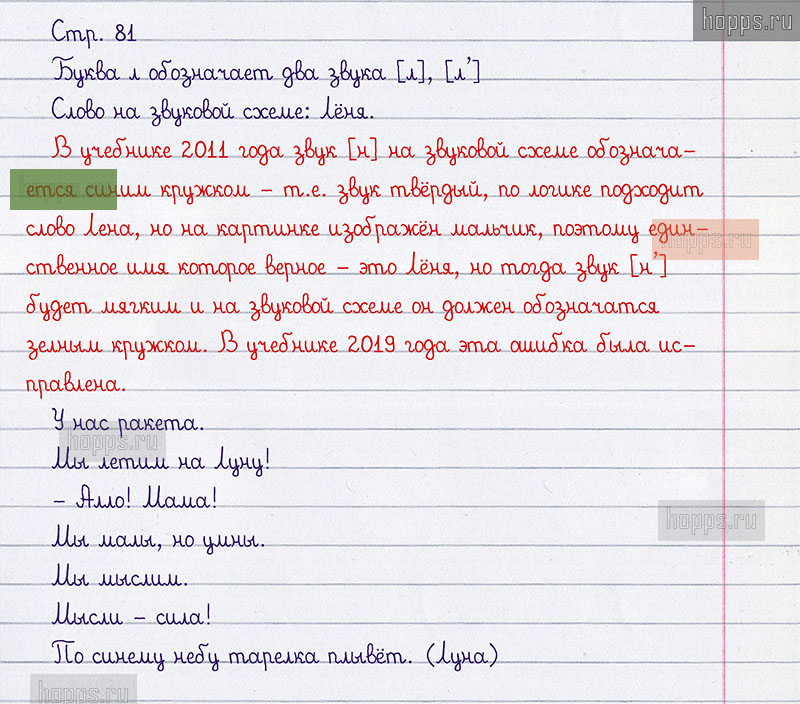 hopps.ru
Стр. 81
Буква л обозначает два звука [л], [л']
Слово на звуковой схеме: Лёня.
В учебнике 2011 года звук [н] на звуковой схеме обознача-
ется синим кружком – т.е. звук твёрдый, по логике подходит
слово Лена, но на картинке изображён мальчик, поэтому един-
hopps.ru
ственное имя которое верное – это Лёня, но тогда звук [н']
будет мягким и на звуковой схеме он должен обозначатся
зелным кружком. В учебнике 2019 года эта ашибка была ис-
правлена.
У нас ракета.
hopps.ru
Мы летим на Луну!
– Алло! Мама!
hopps.ru
Мы малы, но умны.
Мы мыслим.
Мысли – сила!
По синему небу тарелка плывёт. (Луна)
hopps.ru